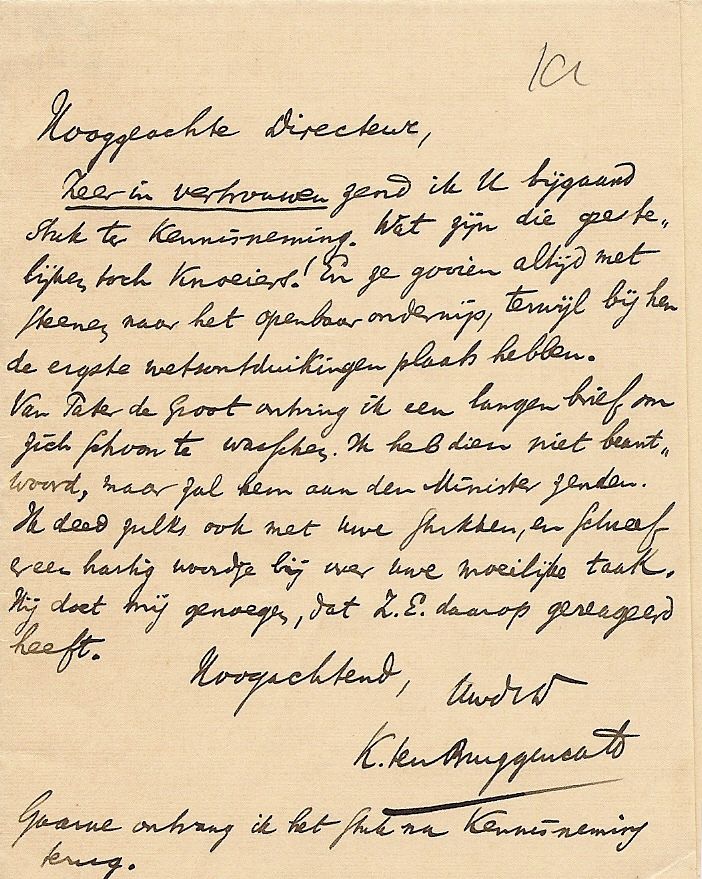 1a
Hooggeachte Directeur,
Zeer in vertrouwen zend ik U bijgaand
stuk ter Kennisneming. Wat zijn die geeste„
lijken toch Knoeiers! En ze gooien altijd met
steenen naar het openbaar onderwijs, terwijl bij hen
de ergste wetsontduikingen plaats hebben.
Van Pater de Groot ontving ik een langen brief om
zich schoon te wasschen. Ik heb dien niet beant„
woord, maar zal hem aan den Minister zenden.
Ik deed zulks ook met uwe stukken, en schreef
er een hartig woordje bij over uwe moeilijke taak.
Hij doet mij genoegen, dat Z.E. daarop gereageerd
heeft.
Hoogachtend,
UwdW
K. ten Bruggencate
Gaarne ontvang ik het stuk na Kennisneming
terug.